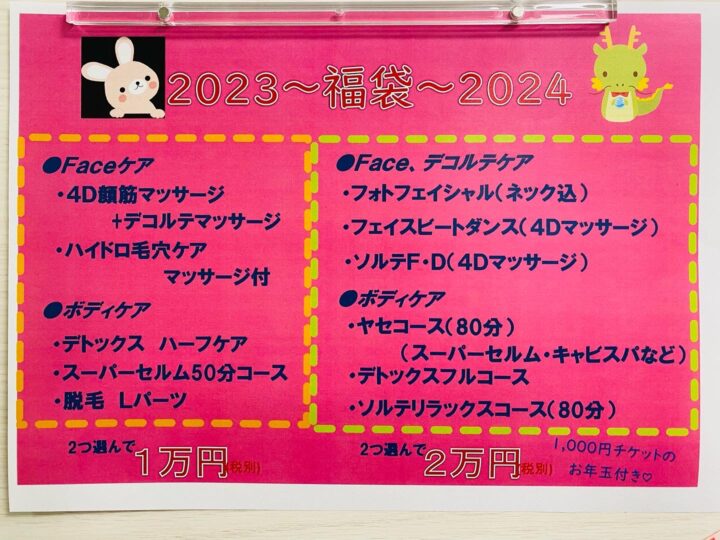 2023～福袋～2024
●Faceケア
・4D顔筋マッサージ
+デコルテマッサージ
・ハイドロ毛穴ケア
マッサージ付
●ボディケア
・デトックス ハーフケア
・スーパーセルム50分コース
・脱毛 Lパーツ
2つ選んで
1万円(税別)
●Face、デコルテケア
・フォトフェイシャル(ネック込)
・フェイスビートダンス(4Dマッサージ)
・ソルテF・D(4Dマッサージ)
●ボディケア
・ヤセコース(80分)
(スーパーセルム・キャビスパなど)
・デトックスフルコース
・ソルテリラックスコース(80分)
2つ選んで
2万円(税別)
1,000円チケットの
お年玉付き♡